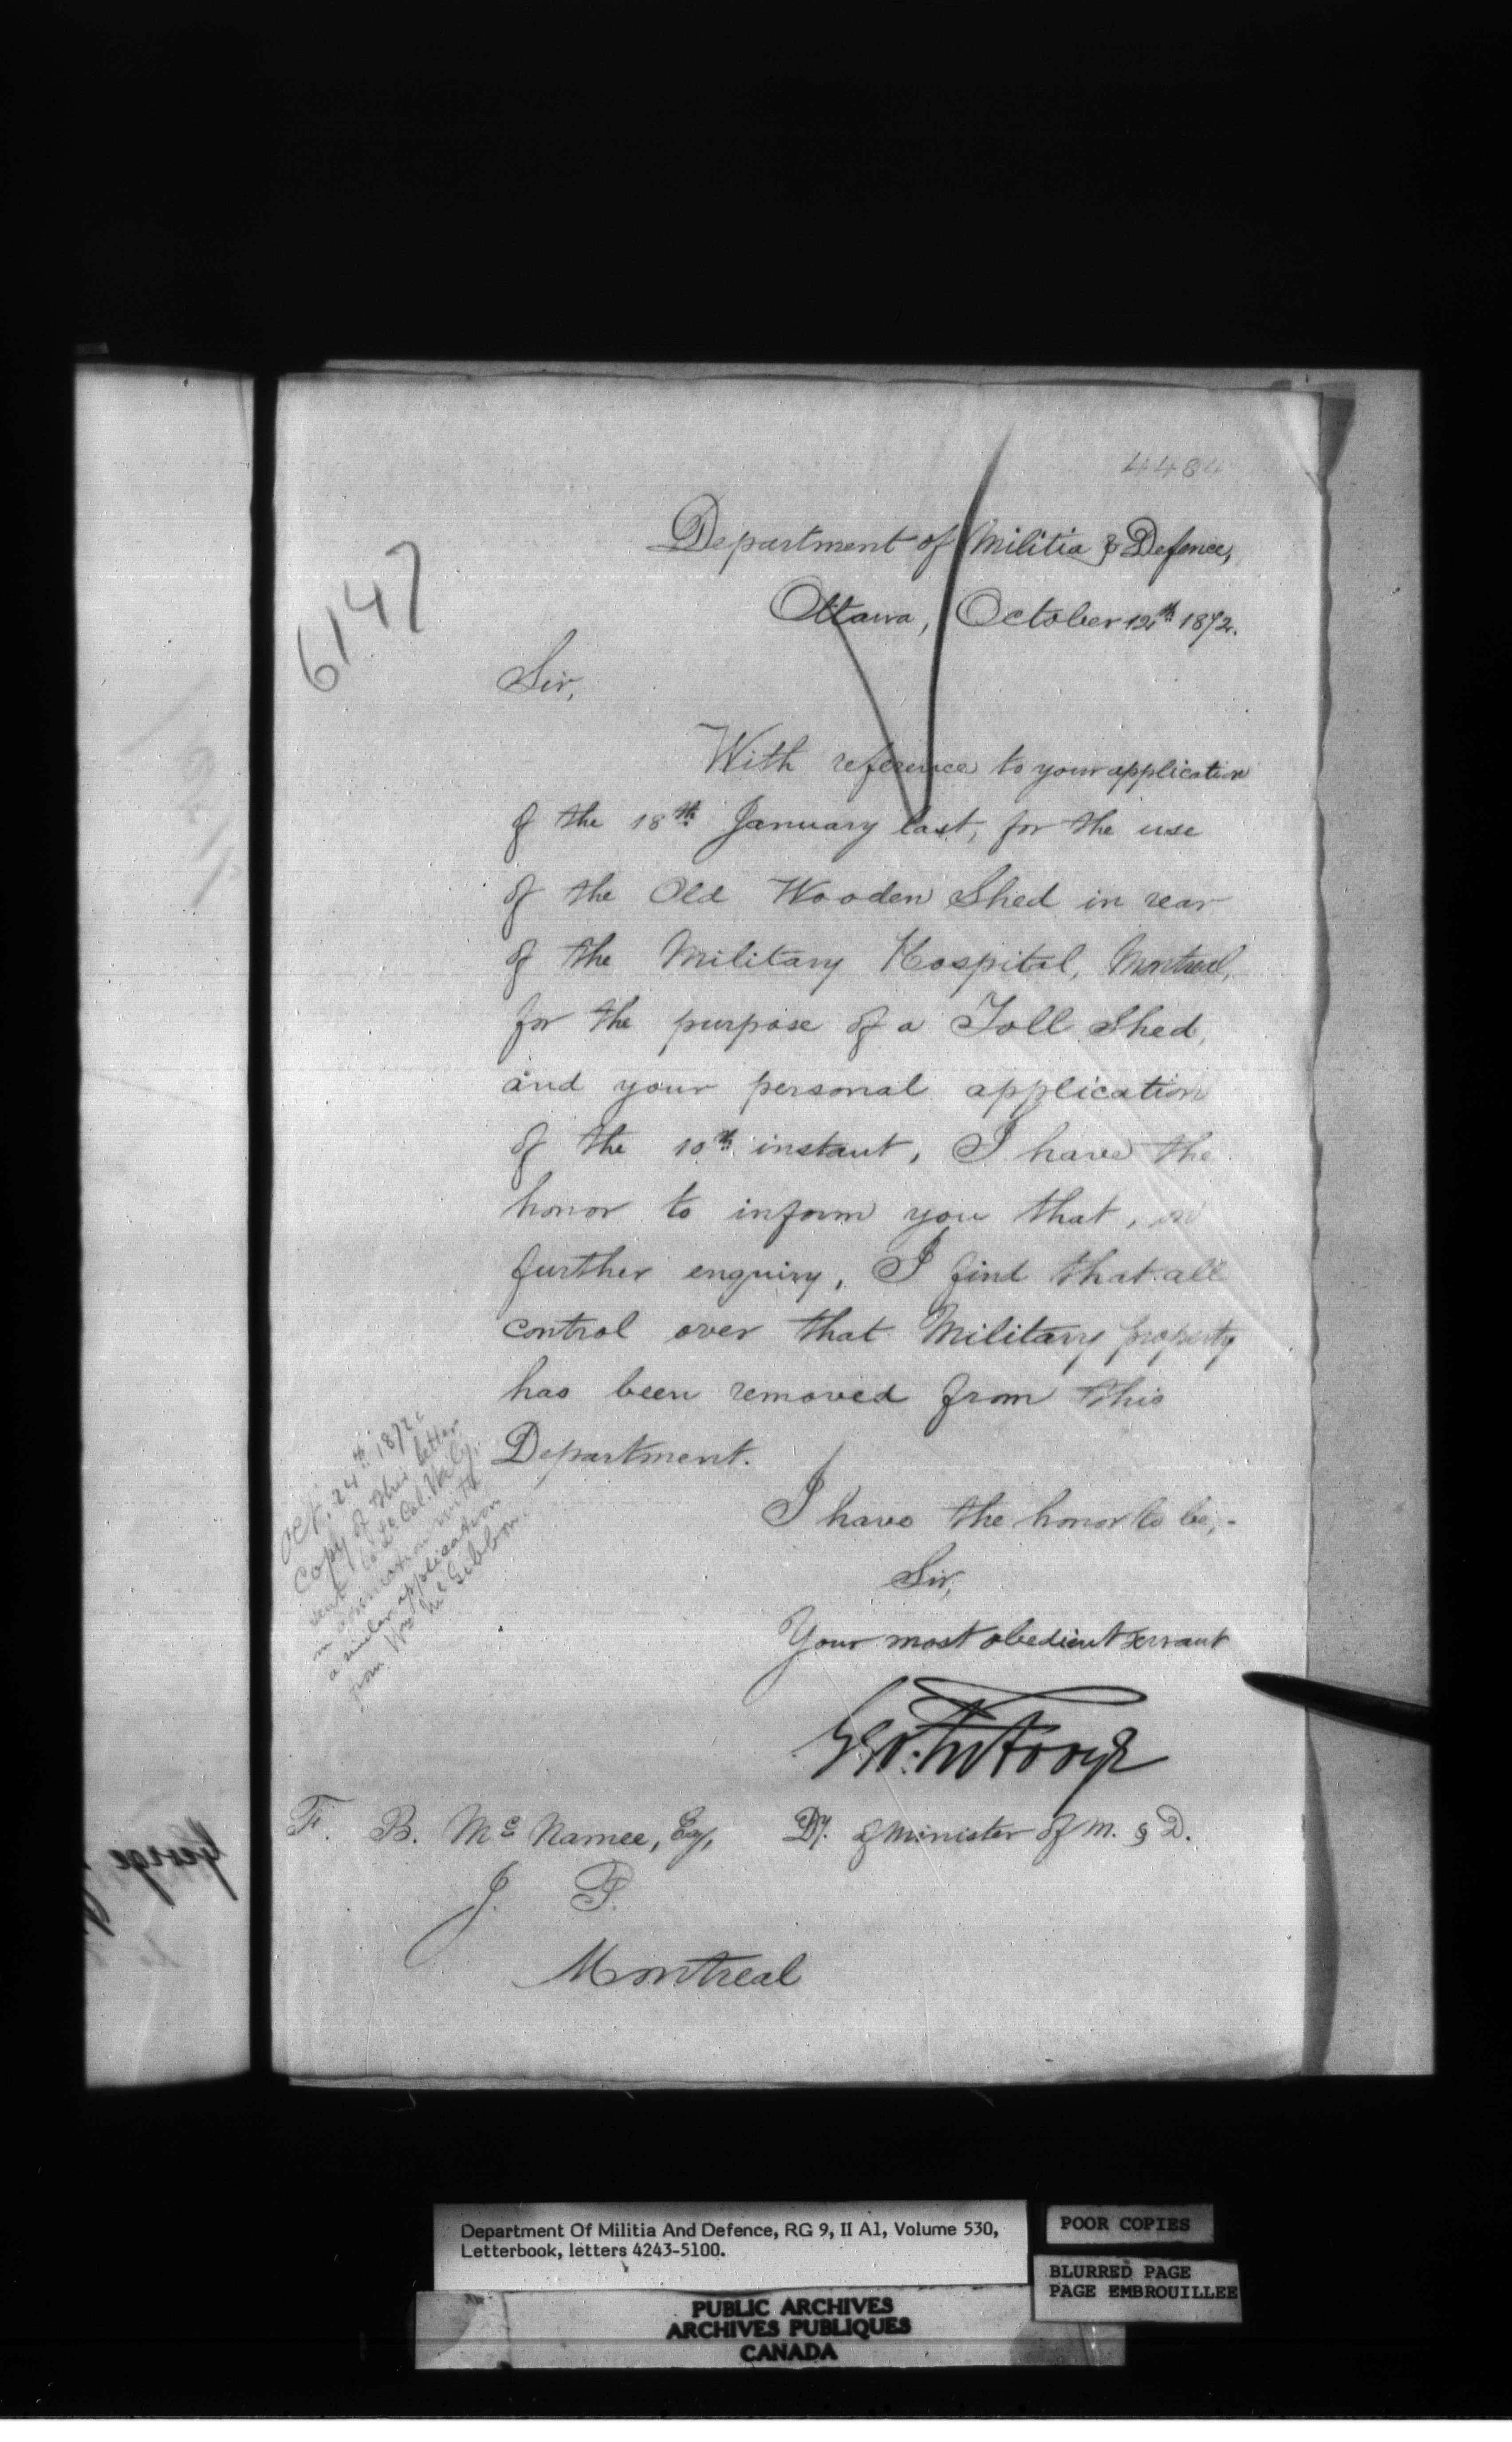 6147
Department of Militia & Defence,
Ottawa, October 12th 1872.
Sir,
With reference to your application
of the 18th January last, for the use
of the Old Wooden Shed in rear
of the Military Hospital, Montreal,
for the purpose of a Toll Shed,
and your personal application
of the 10th instant, I have the
honor to inform you that, on
further enquiry, I find that all
control over that Military property
has been removed from this
Department.
I have the honor to be,-
Sir,
Your most obedient servant
Geo. Futvoye
Dy. of Minister of M. & D.
F. B. Mc Namee, Esq,
J. P.
Montreal
Oct. 24th 1872
Copy of this letter
sent to Lt Col.
in connection with
a similar application
from Wm McGibbon.
George
Department Of Militia And Defence, RG 9, II A1, Volume 530,
Letterbook, letters 4243-5100.
POOR COPIES
BLURRED PAGE
PAGE EMBROUILLEE
PUBLIC ARCHIVES
ARCHIVES PUBLIQUES
CANADA